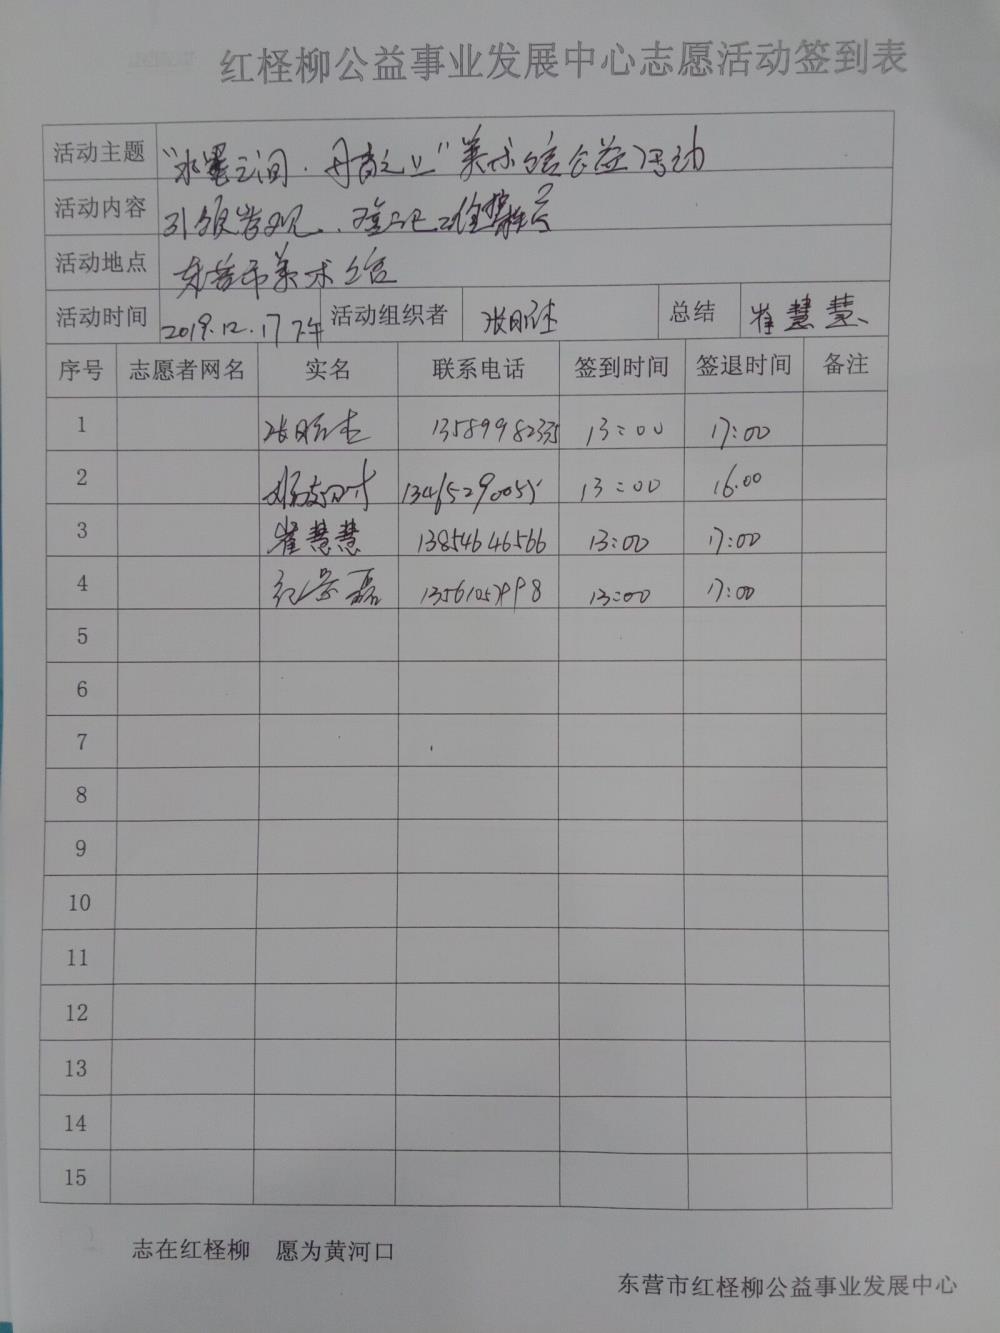 红柽柳公益事业发展中心志愿活动签到表
活动主题 "水墨之间·丹青之上"美术馆公益活动
活动内容 引领参观、
活动地点 东营市美术馆
活动时间 2019.12.17下午 活动组织者 张昭 总结 崔慧慧
序号 志愿者网名 实名 联系电话 签到时间 签退时间 备注
1 张昭 13589982335 13:00 17:00
2 13465290055 13:00 16:00
3 崔慧慧 13854646566 13:00 17:00
4 纪 磊 13:00 17:00
5
6
7
8
9
10
11
12
13
14
15
志在红柽柳 愿为黄河口
东营市红柽柳公益事业发展中心